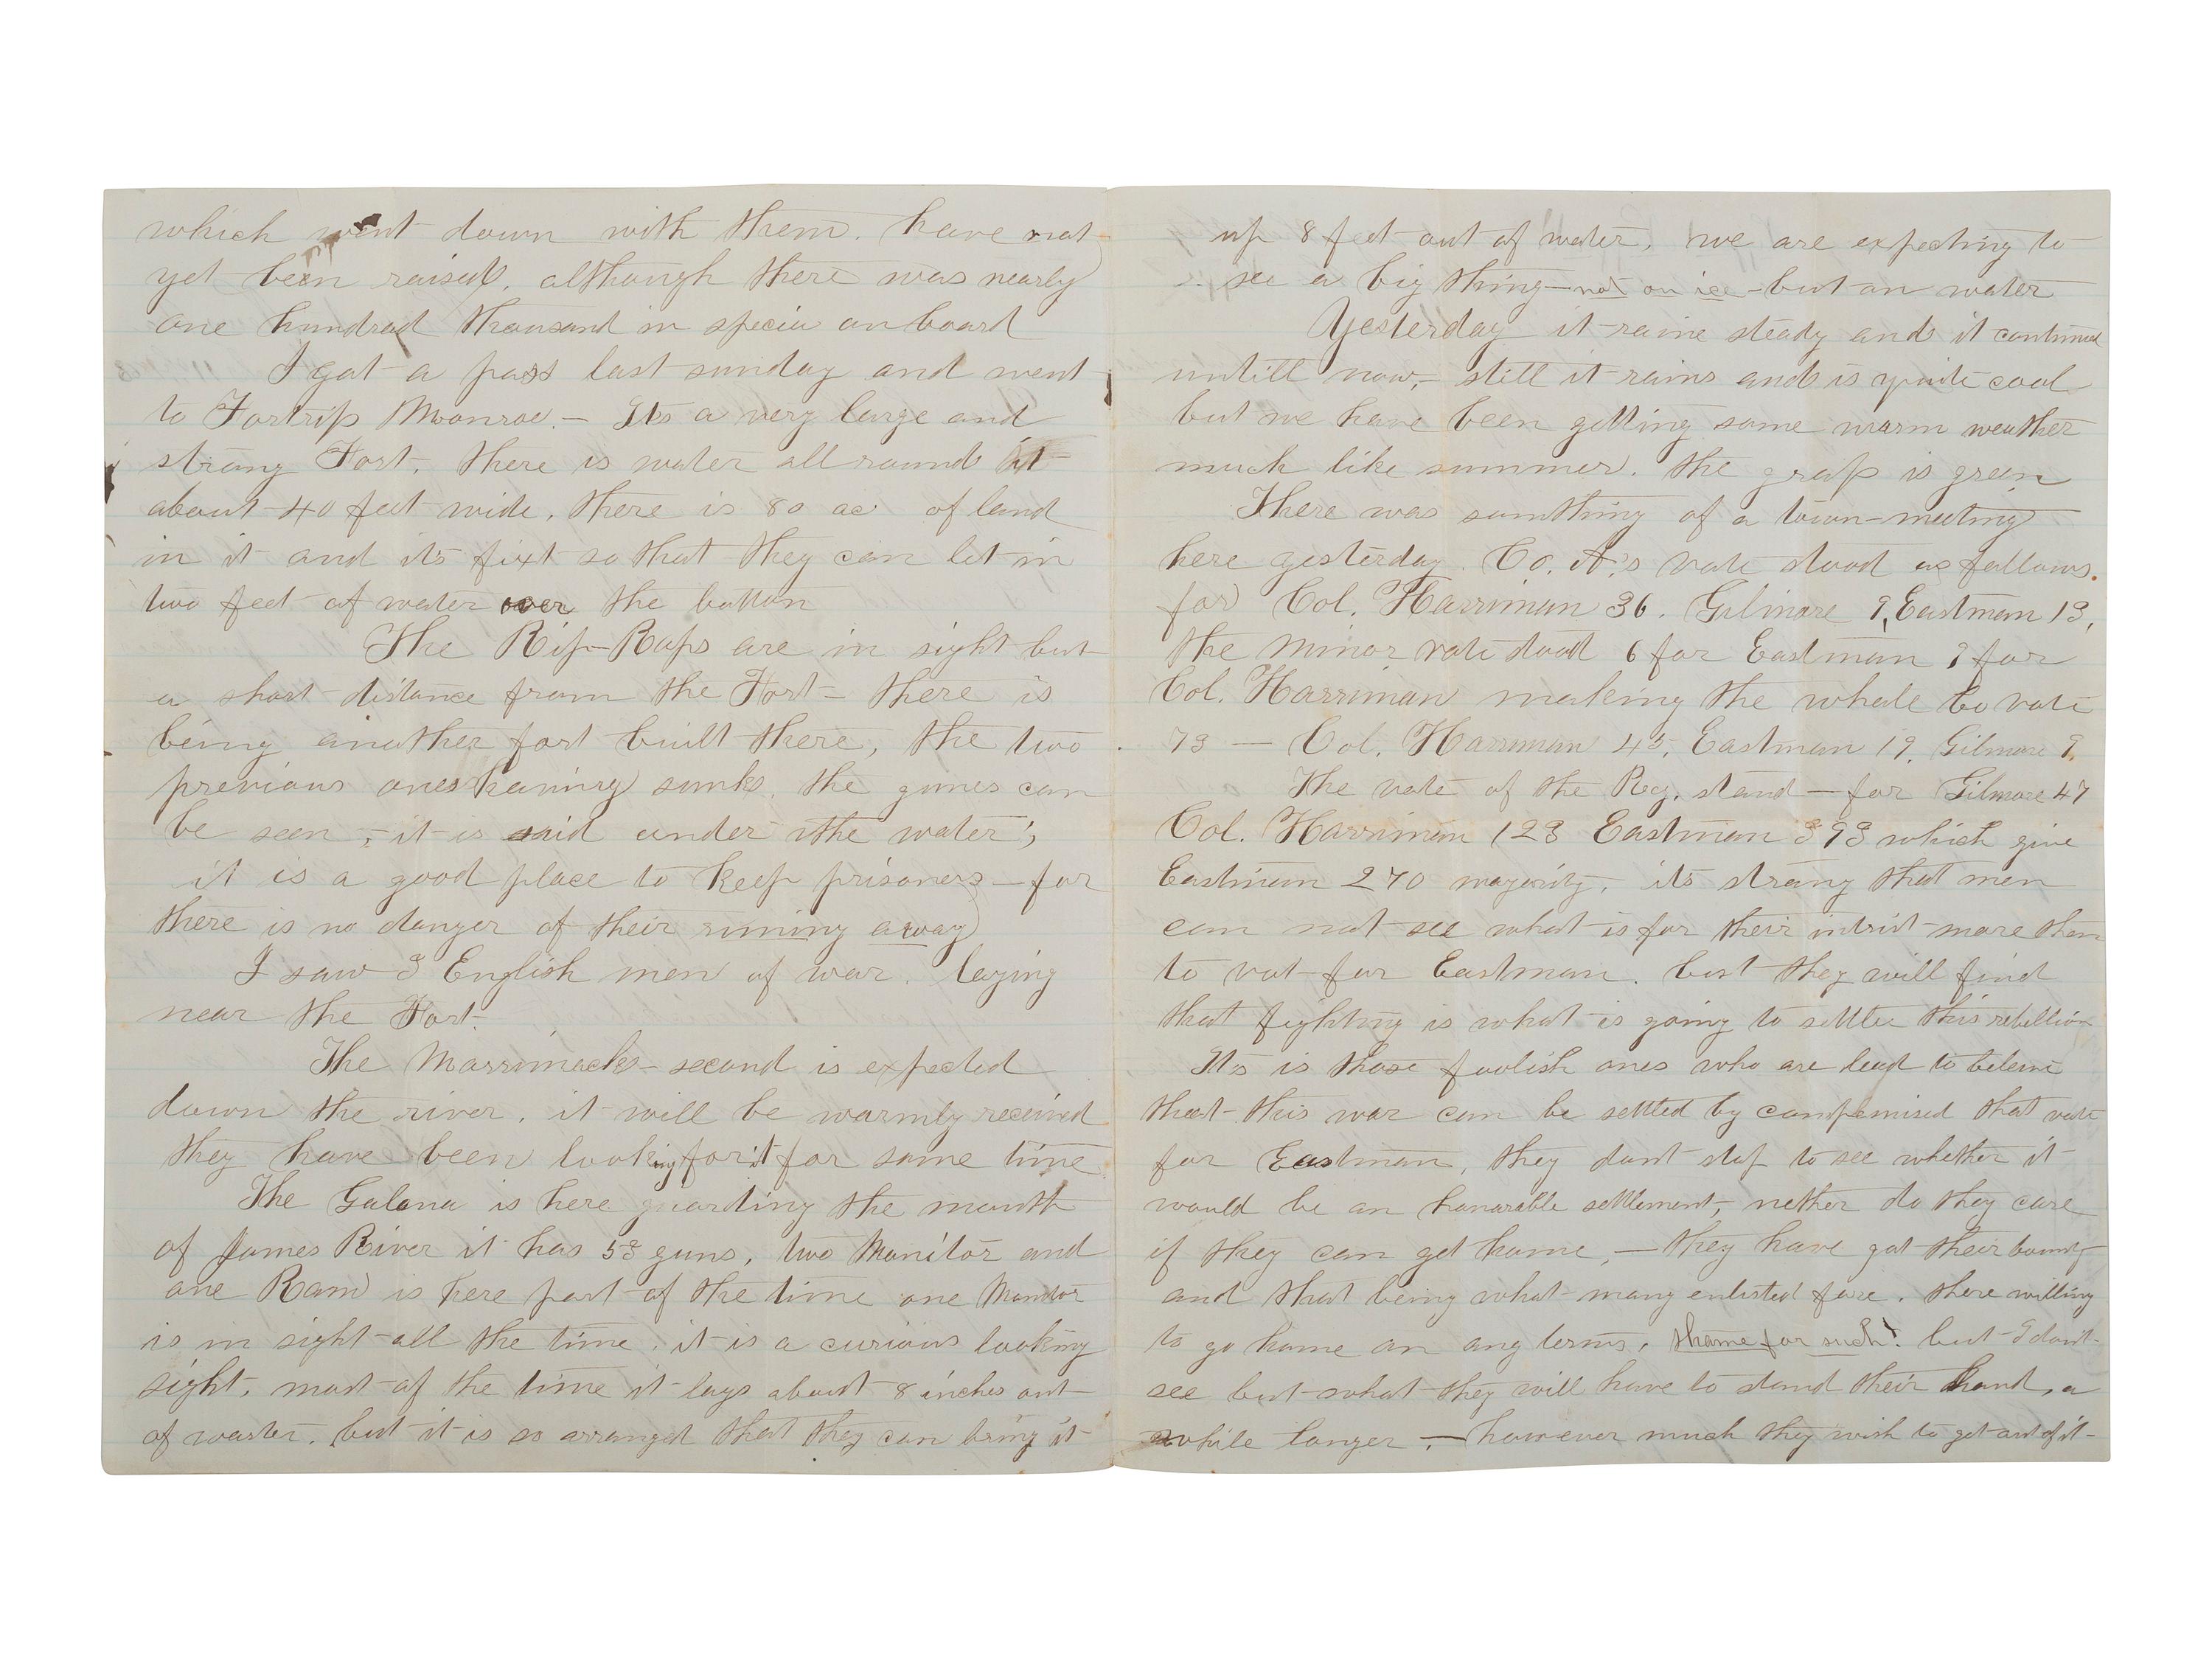 which went down with them. have not
yet been raised, although there was nearly
one hundred thousand in specia on board
I got a pass last sunday and went
to Fortrip Monroe. — Its a very large and
strong Fort, there is water all round it
about 40 feet wide, there is 80 ac of land
in it and its fixt so that they can let in
two feet of water over the bottom
The Rip-Raps are in sight but
a short distance from the Fort — there is
being another fort built there, the two
previous ones haveing sunk, the gunes can
be seen, it is said under the water,
it is a good place to keep prisoners — for
there is no danger of their runing away
I saw 3 English men of war. laying
near the Fort.
The Marrimack — second is expected
down the river, it will be warmly received
they have been looking for it for some time
The Galena is here guarding the mouth
of James River it has 53 guns, two Monitor and
one Ram is here part of the time one Monitor
is in sight all the time, it is a curious looking
sight, most of the time it lays about 8 inches out
of waster. but it is so arranged that they can bring it
up 8 feet out of water, we are expecting to
see a big thing — not on ice — but on water
Yesterday it raine steady and it continued
untill now, — still it rains and is quite cool
but we have been getting some warm weather
much like summer. the grass is green
There was somthing of a town-meeting
here yesterday. Co. A,s vote stood as follows.
for Col. Harriman 36. Gilmore 9, Eastman 13,
the minor vote stood 6 for Eastman 9 for
Col. Harriman making the whole Co vote
73 — Col. Harriman 45, Eastman 19, Gilmore 9.
The vote of the Reg. stand — for Gilmore 47
Col. Harriman 123 Eastman 393 which give
Eastman 270 majority, its strang that men
can not see what is for their intrist more then
to vot for Eastman. but they will find
that fighting is what is going to settle this rebellion
Its is those foolish ones who are lead to beleive
that this war can be settled by compemised that vote
for Eastman, they dont stop to see whether it
would be an honorable settlement, nether do they care
if they can get home, — they have got their bounty
and that being what many enlisted fore, there willing
to go home on any terms, shame for such! but I dont
see but what they will have to stand their hand, a
while longer, — however much they wish to get out of it —